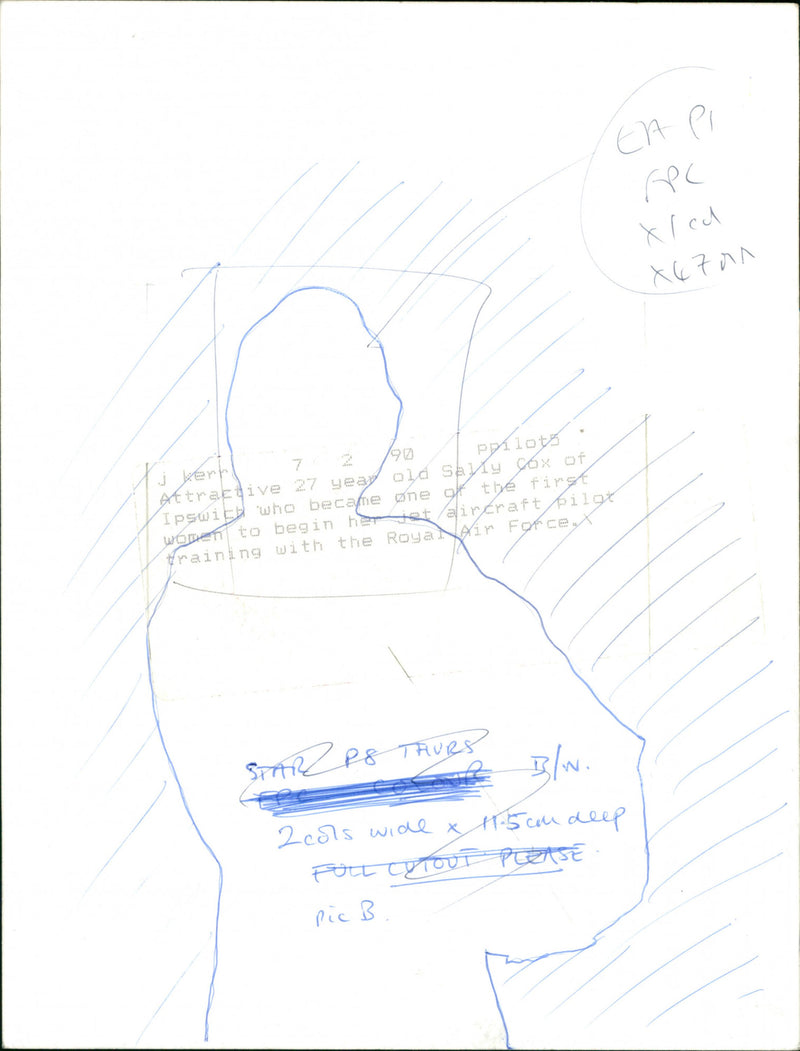 EA P1
FPC
x1 col
x47mm
j kerr 7 2 90 ppilot5
Attractive 27 year old Sally Cox of
Ipswich who became one of the first
women to begin her jet aircraft pilot
training with the Royal Air Force.\
STAR P8 THURS B/W.
FPC COLOUR
2 cols wide x 11.5cm deep
FULL CUTOUT PLEASE
pic B.